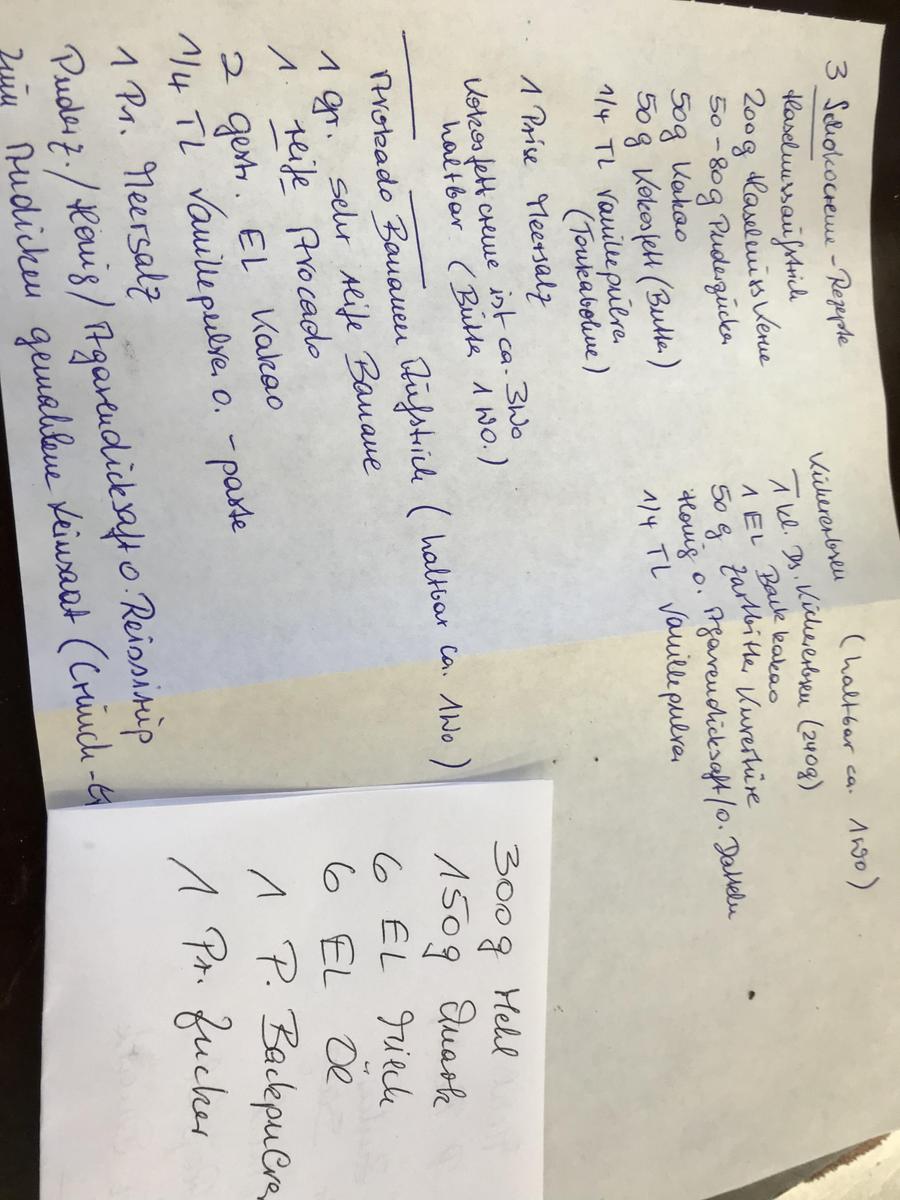 3 Schokocreme-Rezepte
Haselnussaufstrich
200g Haselnusskerne
50-80g Puderzucker
50g Kakao
50g Kokosfett (Butter)
1/4 TL Vanillepulver
(Tonkabohne)
1 Prise Meersalz
Kokosfettcreme ist ca. 3Wo
haltbar (Butter 1Wo.)
Kichererbsen (haltbar ca. 1Wo)
1 kl. Ds. Kichererbsen (240g)
1 EL Backkakao
50 g Zartbitter Kuvertüre
Honig o. Agavendicksaft/o. Datteln
1/4 TL Vanillepulver
Avokado Bananen Aufstrich (haltbar ca. 1Wo)
1 gr. sehr reife Banane
1 reife Avocado
2 gestr. EL Kakao
1/4 TL Vanillepulver o. -paste
1 Pr. Meersalz
Puderz./Honig/Agavendicksaft o. Reissirup
Zum Andicken gemahlene Leinsaat (Crunch-
300g Mehl
150g Quark
6 EL Milch
6 EL Öl
1 P. Backpulver
1 Pr. Zucker